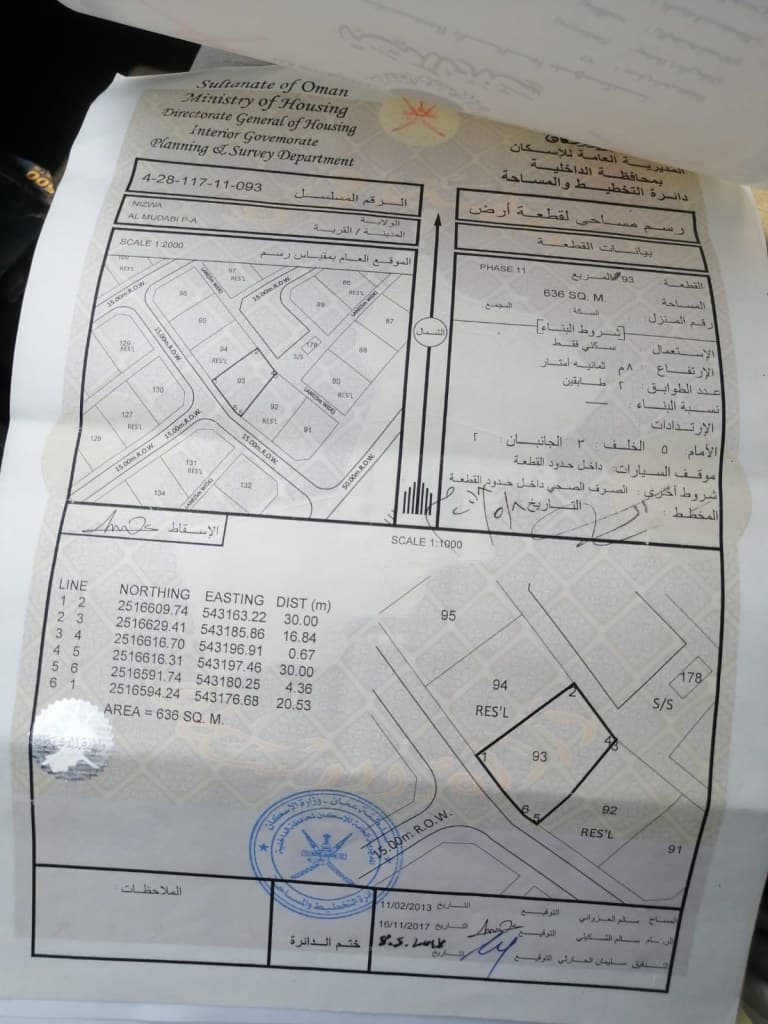 Sultanate of Oman
Ministry of Housing
Directorate General of Housing
Interior Governorate
Planning & Survey Department
المديرية العامة للإسكان
بمحافظة الداخلية
دائرة التخطيط والمساحة
4-28-117-11-093
الرقم المسلسل
NIZWA
الولاية
AL MUDABI P-A
المدينة / القرية
رسم مساحى لقطعة أرض
بيانات القطعة
SCALE 1:2000
الموقع العام بمقياس رسم
97
RES'L
96
15.00m R.O.W.
88
RES'L
89
87
95
129
RES'L
94
RES'L
179
S/S
88
130
93
90
RES'L
127
RES'L
92
RES'L
91
128
131
RES'L
132
134
15.00m R.O.W.
50.00m R.O.W.
الشمال
PHASE.11
القطعة : 93 المربع
المساحة 636 SQ. M.
رقم المنزل السكة: المجمع
[شروط البناء]
الإستعمال : سكني فقط
الإرتفاع : ٨م ثمانية أمتار
عدد الطوابق : ٢ طابقين
نسبة البناء :
الإرتدادات
الأمام: ٥ الخلف: ٣ الجانبان: ٢
موقف السيارات: داخل حدود القطعة
شروط أخرى : الصرف الصحي داخل حدود القطعة
المخطط : التاريخ
الإسقاط :
SCALE 1:1000
LINE NORTHING EASTING DIST (m)
1 2 2516609.74 543163.22 30.00
2 3 2516629.41 543185.86 16.84
3 4 2516616.70 543196.91 0.67
4 5 2516616.31 543197.46 30.00
5 6 2516591.74 543180.25 4.36
6 1 2516594.24 543176.68 20.53
AREA = 636 SQ. M.
95
94
RES'L
178
S/S
2
1
93
6 5
92
RES'L
91
15.00m R.O.W.
الملاحظات
ختم الدائرة
11/02/2013 التاريخ التوقيع
16/11/2017 التاريخ التوقيع
التاريخ التوقيع